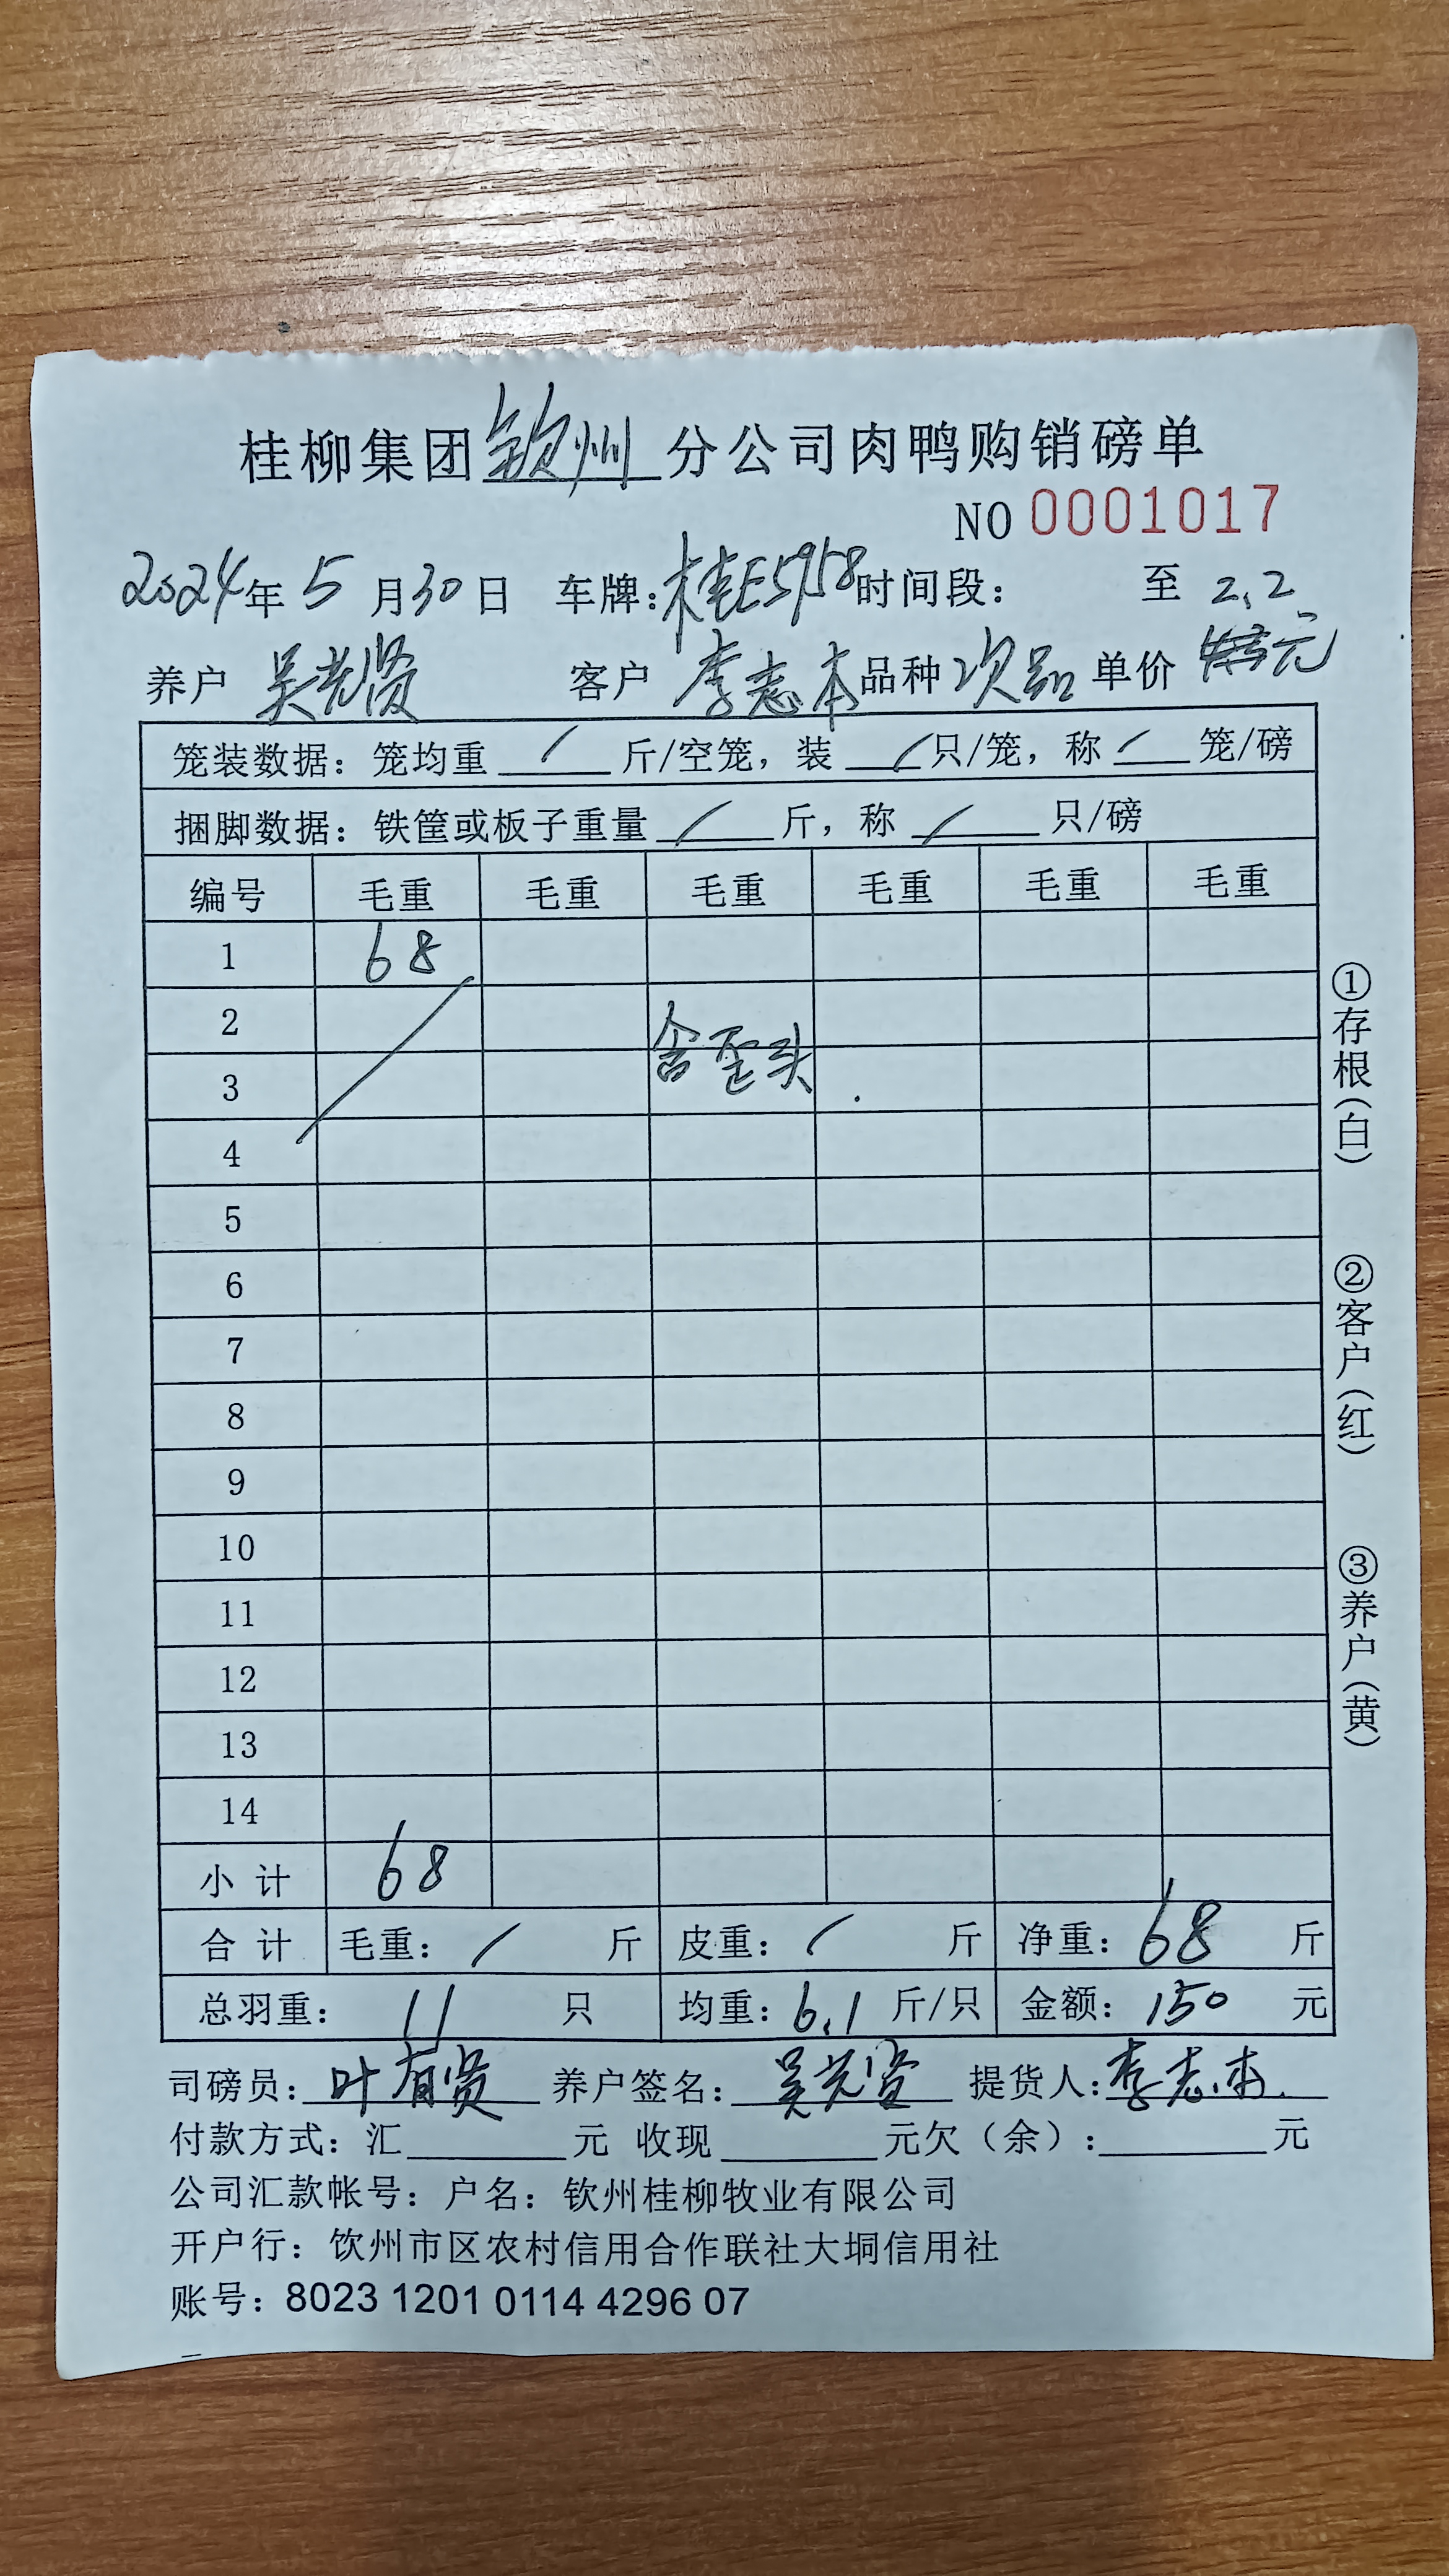 桂柳集团钦州分公司肉鸭购销磅单
NO 0001017
2024年5月30日 车牌:桂E5958时间段: 至 2.2
养户 吴光贤 客户 李志本 品种 次品 单价 元
笼装数据: 笼均重 / 斤/空笼, 装 / 只/笼, 称 / 笼/磅
捆脚数据: 铁筐或板子重量 / 斤, 称 / 只/磅
编号 毛重 毛重 毛重 毛重 毛重 毛重
1 68
2
含歪头
3
4
5
6
7
8
9
10
11
12
13
14
小计 68
合计 毛重: / 斤 皮重: / 斤 净重: 68 斤
总羽重: 11 只 均重: 6.1 斤/只 金额: 150 元
司磅员: 叶有贤 养户签名: 吴光贤 提货人: 李志本
付款方式: 汇 元 收现 元欠(余): 元
公司汇款帐号: 户名: 钦州桂柳牧业有限公司
开户行: 饮州市区农村信用合作联社大垌信用社
账号: 8023 1201 0114 4296 07
①存根(白)
②客户(红)
③养户(黄)